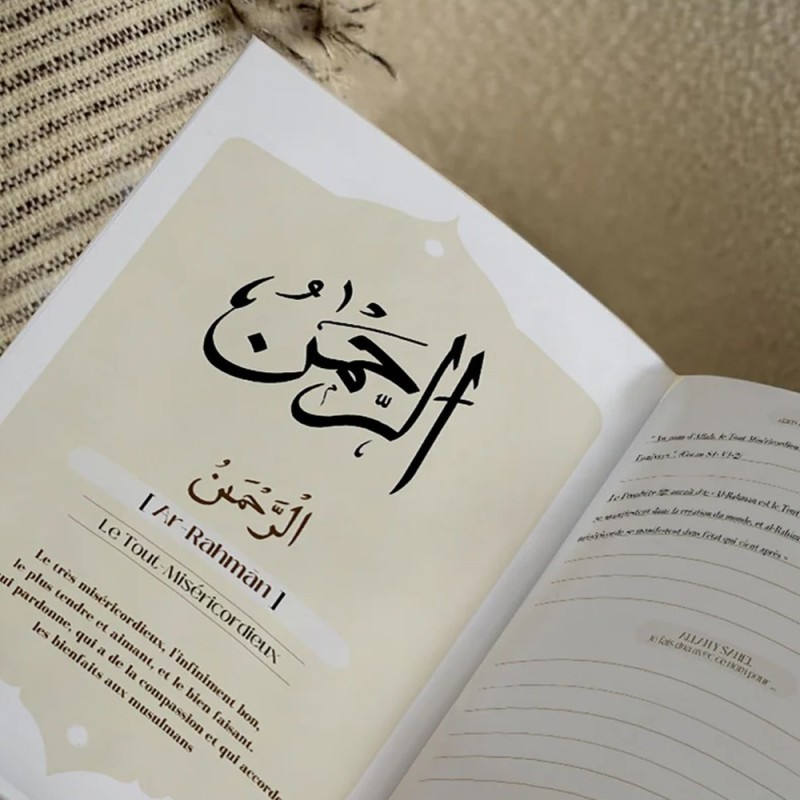 الرَّحْمَنُ
الرَّحْمَنُ
[ Ar-Rahmān ]
Le Tout-Miséricordieux
Le très miséricordieux, l'infiniment bon,
le plus tendre et aimant, et le bien faisant.
ui pardonne, qui a de la compassion et qui accorde
les bienfaits aux musulmans
"Au nom d'Allah, le Tout Miséricordieu
l'univers." (Coran S1: V1-2)
Le Prophète ﷺ aurait dit: « Al-Rahman est le Tout
se manifestent dans la création du monde, et al-Rahim
miséricorde se manifestent dans l'état qui vient après »
ALLAHY SAHEL
Je fais dua avec ce nom pour...